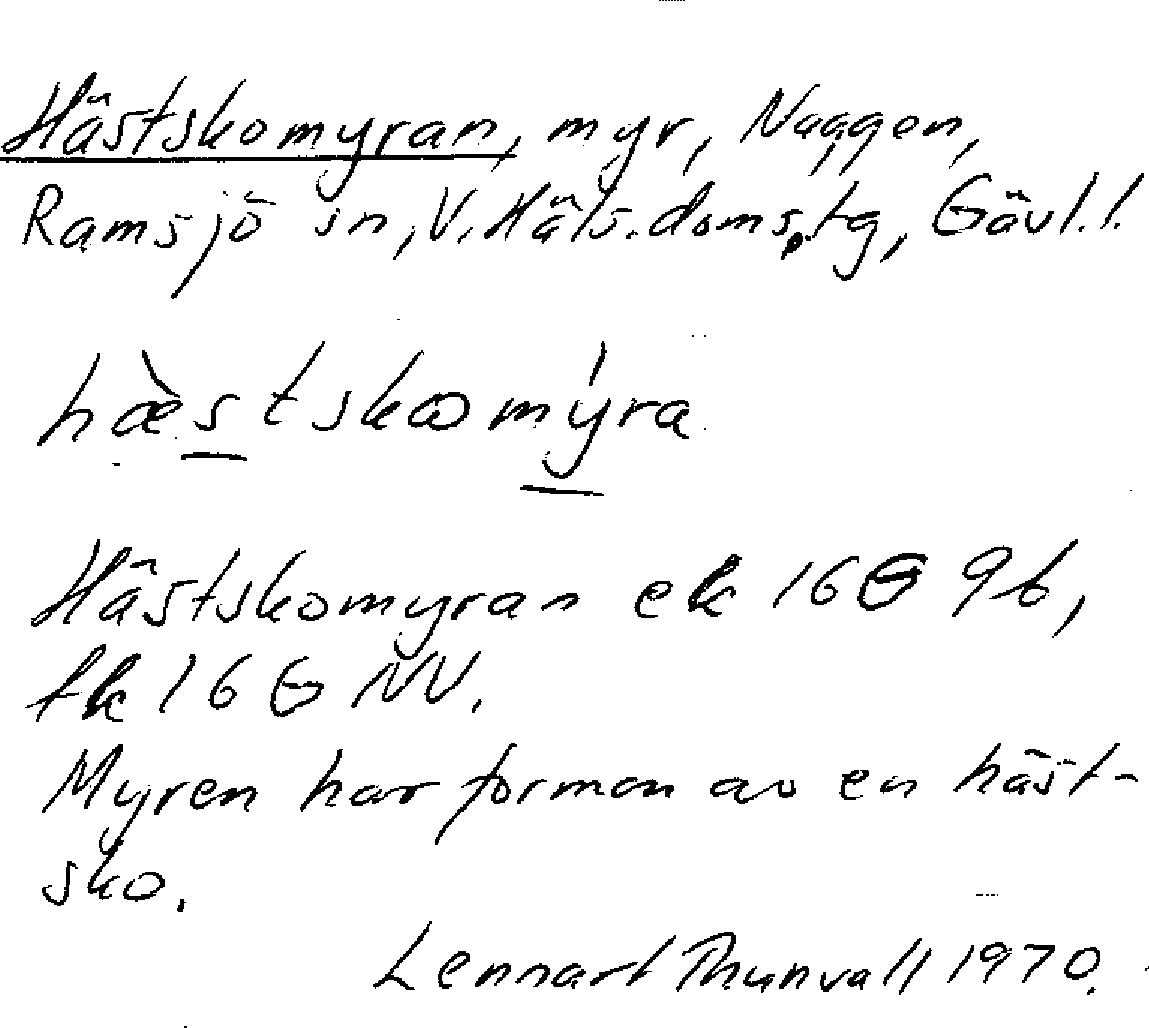 Hästskomyran, myr, Naggen,
Ramsjö sn, V. Häls. doms.tg, Gävl. l.
hæ̀stskωmýra
Hästskomyran ek 16G 9b,
tk 16G NV.
Myren har formen av en häst-
sko.
Lennart Thunvall 1970.